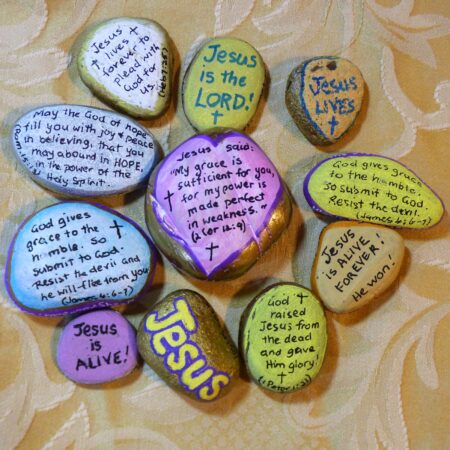 Jesus
lives
forever to
plead with
God for
us.
(Heb 7:25)
Jesus
is the
LORD!
Jesus
LIVES
May the God of hope
fill you with joy & peace
in believing, that you
may abound in HOPE,
in the power of the
Holy Spirit.
Jesus said:
"My grace is
sufficient for you,
for my power is
made perfect
in weakness."
(2 Cor 12:9)
God gives grace
to the humble.
So submit to God.
Resist the devil.
(James 4:6-7)
God gives
grace to the
humble. So
submit to God.
Resist the devil and
he will flee from you.
(James 4:6-7)
Jesus
is ALIVE
FOREVER!
He won!
Jesus
is
ALIVE!
Jesus
God
raised
Jesus from
the dead
and gave
Him glory!
(1 Peter 1:21)